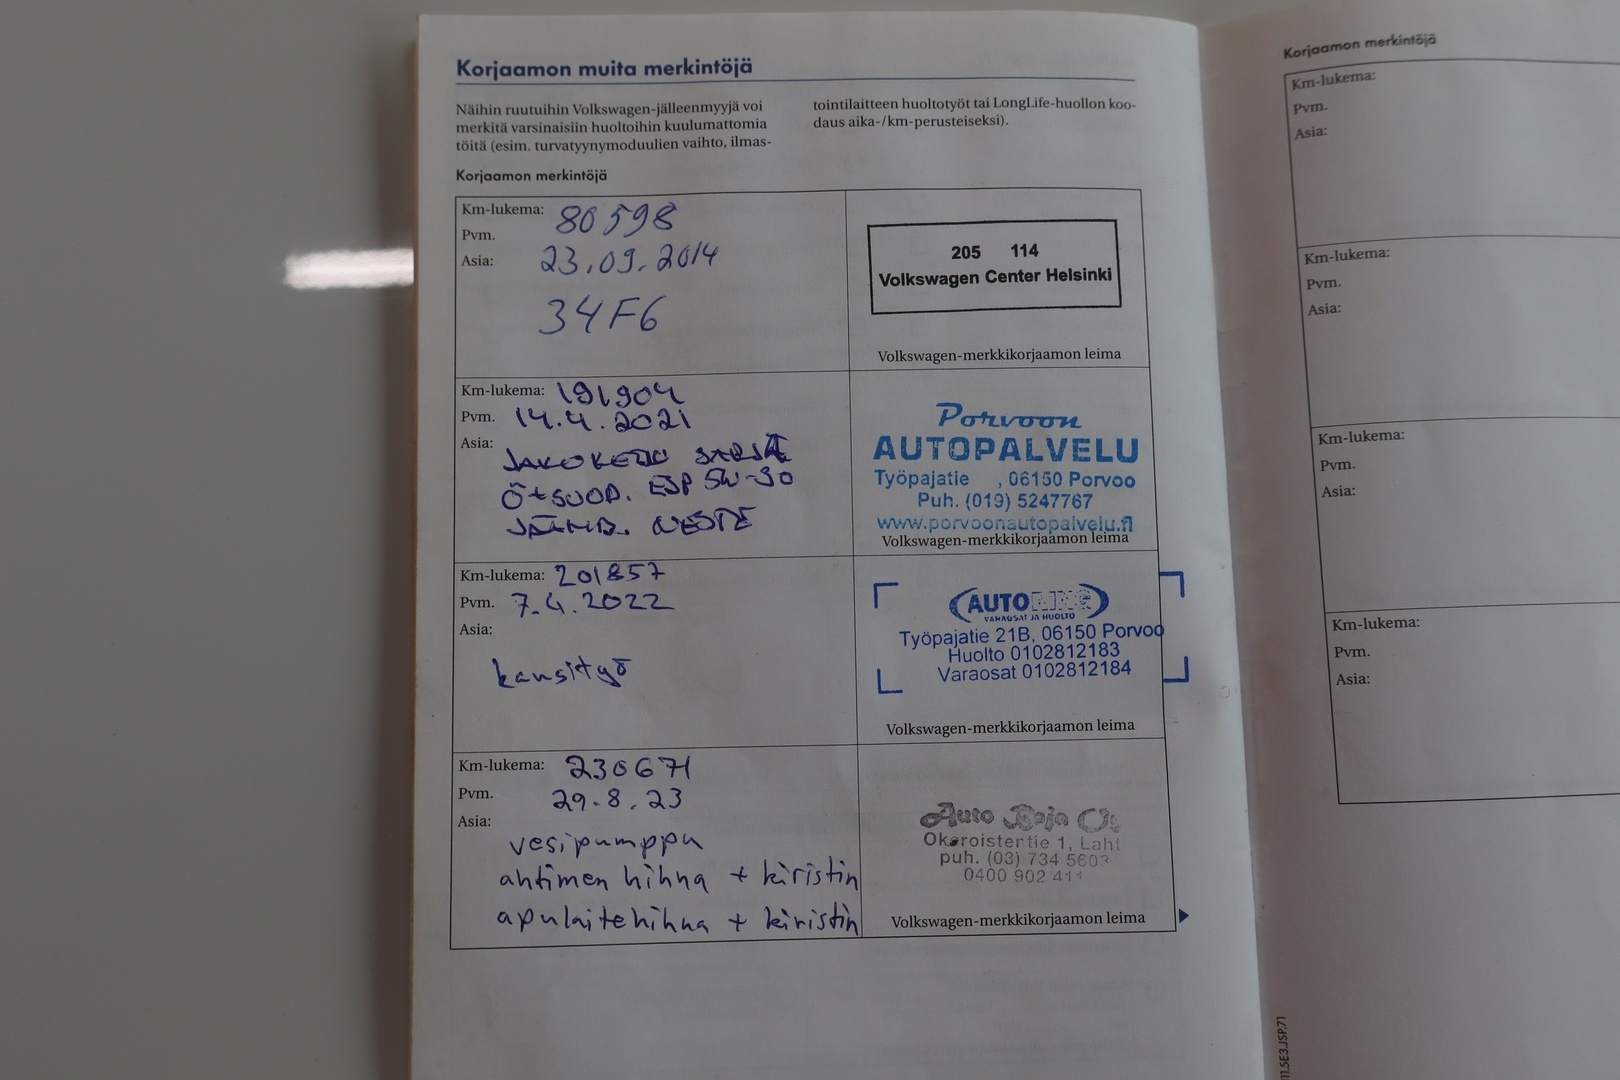 Korjaamon muita merkintöjä
Näihin ruutuihin Volkswagen-jälleenmyyjä voi
merkitä varsinaisiin huoltoihin kuulumattomia
töitä (esim. turvatyynymoduulien vaihto, ilmas-
tointilaitteen huoltotyöt tai LongLife-huollon koo-
daus aika-/km-perusteiseksi).
Korjaamon merkintöjä
Km-lukema: 80598
Pvm. 23.09.2014
Asia: 34F6
205 114
Volkswagen Center Helsinki
Volkswagen-merkkikorjaamon leima
Km-lukema: 191904
Pvm. 14.4.2021
Asia: JAKOKETJU SARJA
Ö+SUOD. ESP 5W-30
JÄÄHD. NESTE
Porvoon
AUTOPALVELU
Työpajatie , 06150 Porvoo
Puh. (019) 5247767
www.porvoonautopalvelu.fi
Volkswagen-merkkikorjaamon leima
Km-lukema: 201857
Pvm. 7.4.2022
Asia:
kansityö
AUTO
VARAOSAT JA HUOLTO
Työpajatie 21B, 06150 Porvoo
Huolto 0102812183
Varaosat 0102812184
Volkswagen-merkkikorjaamon leima
Km-lukema: 230671
Pvm. 29.8.23
Asia:
vesipumppu
ahtimen hihna + kiristin
apulaitehihna + kiristin
Auto
1, Lahti
puh. (03) 734 5603
0400 902 411
Volkswagen-merkkikorjaamon leima
Korjaamon merkintöjä
Km-lukema:
Pvm.
Asia:
Km-lukema:
Pvm.
Asia:
Km-lukema:
Pvm.
Asia:
Km-lukema:
Pvm.
Asia:
11.5E3.JSP.71